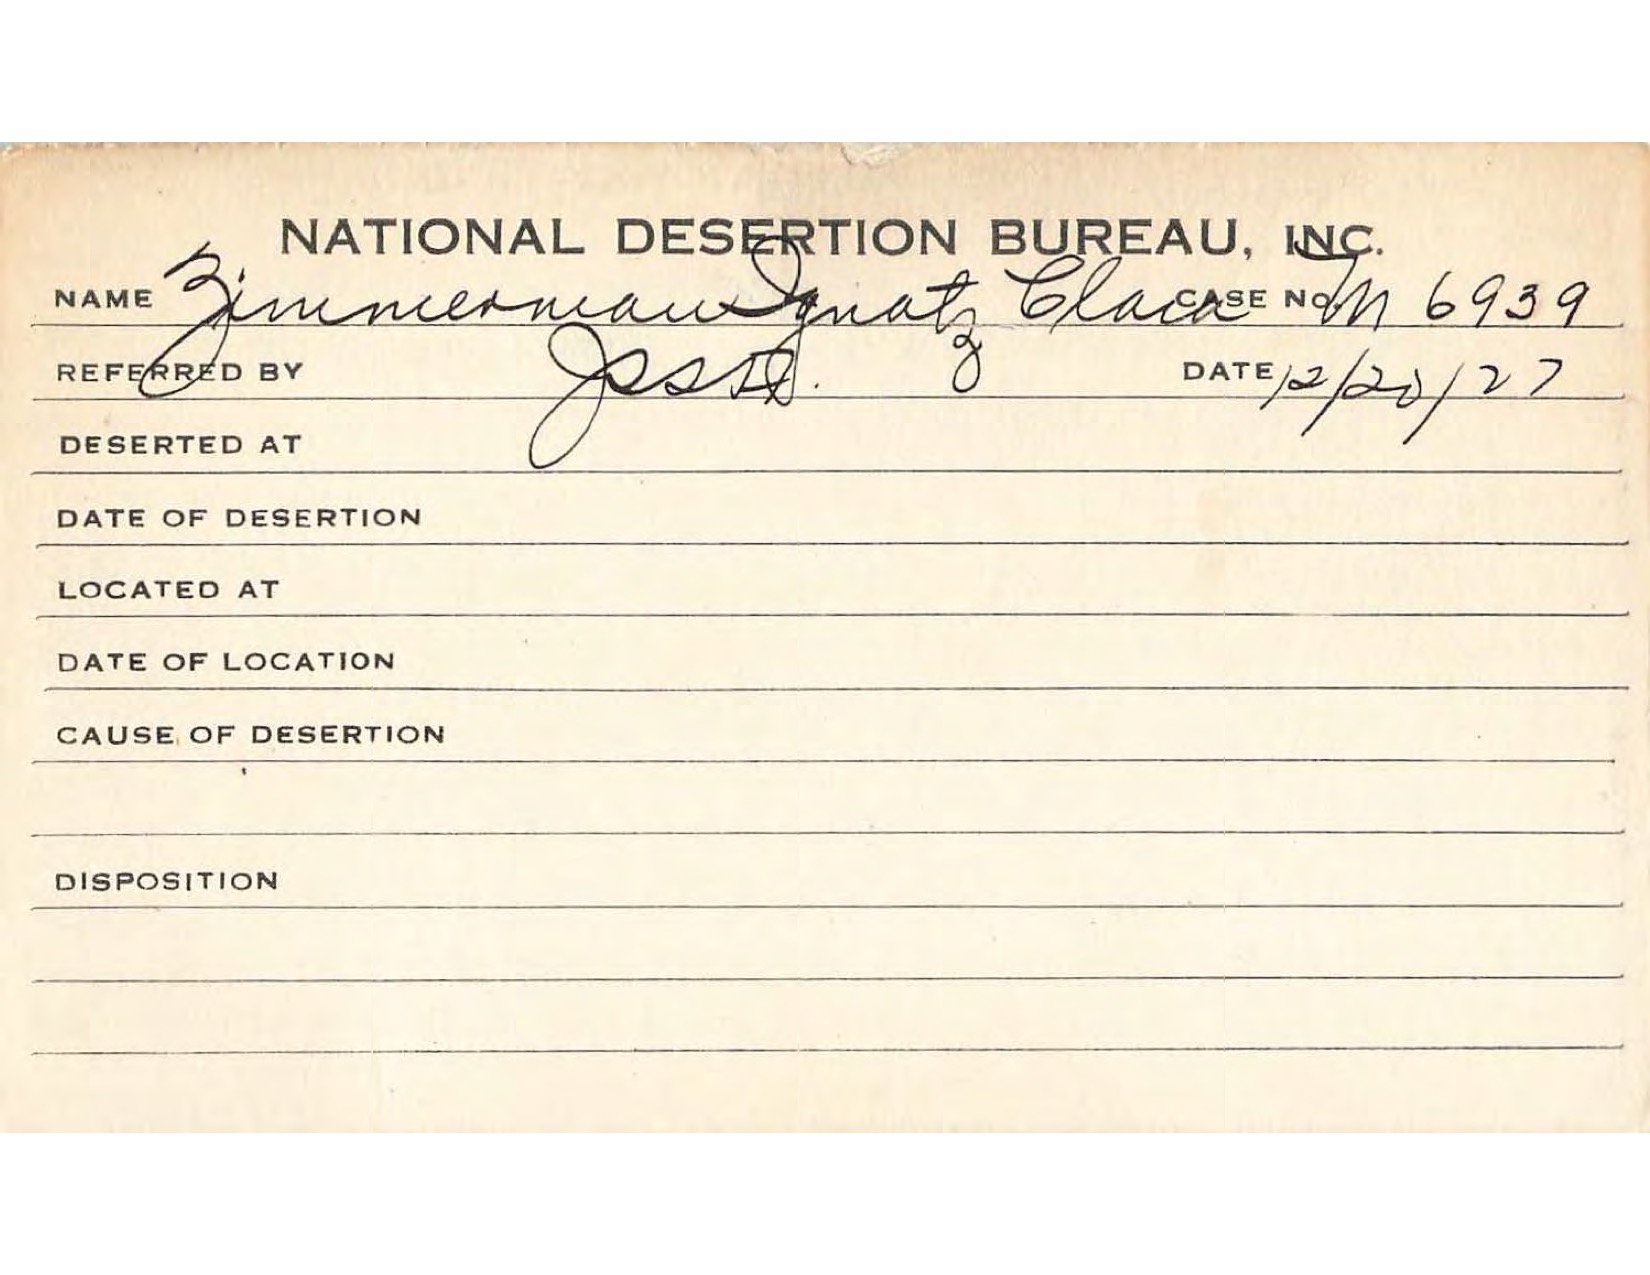 NATIONAL DESERTION BUREAU, INC.
NAME Zimmerman Ignatz Clara CASE NO. M 6939
REFERRED BY JSSB. DATE 12/20/27
DESERTED AT
DATE OF DESERTION
LOCATED AT
DATE OF LOCATION
CAUSE OF DESERTION
DISPOSITION